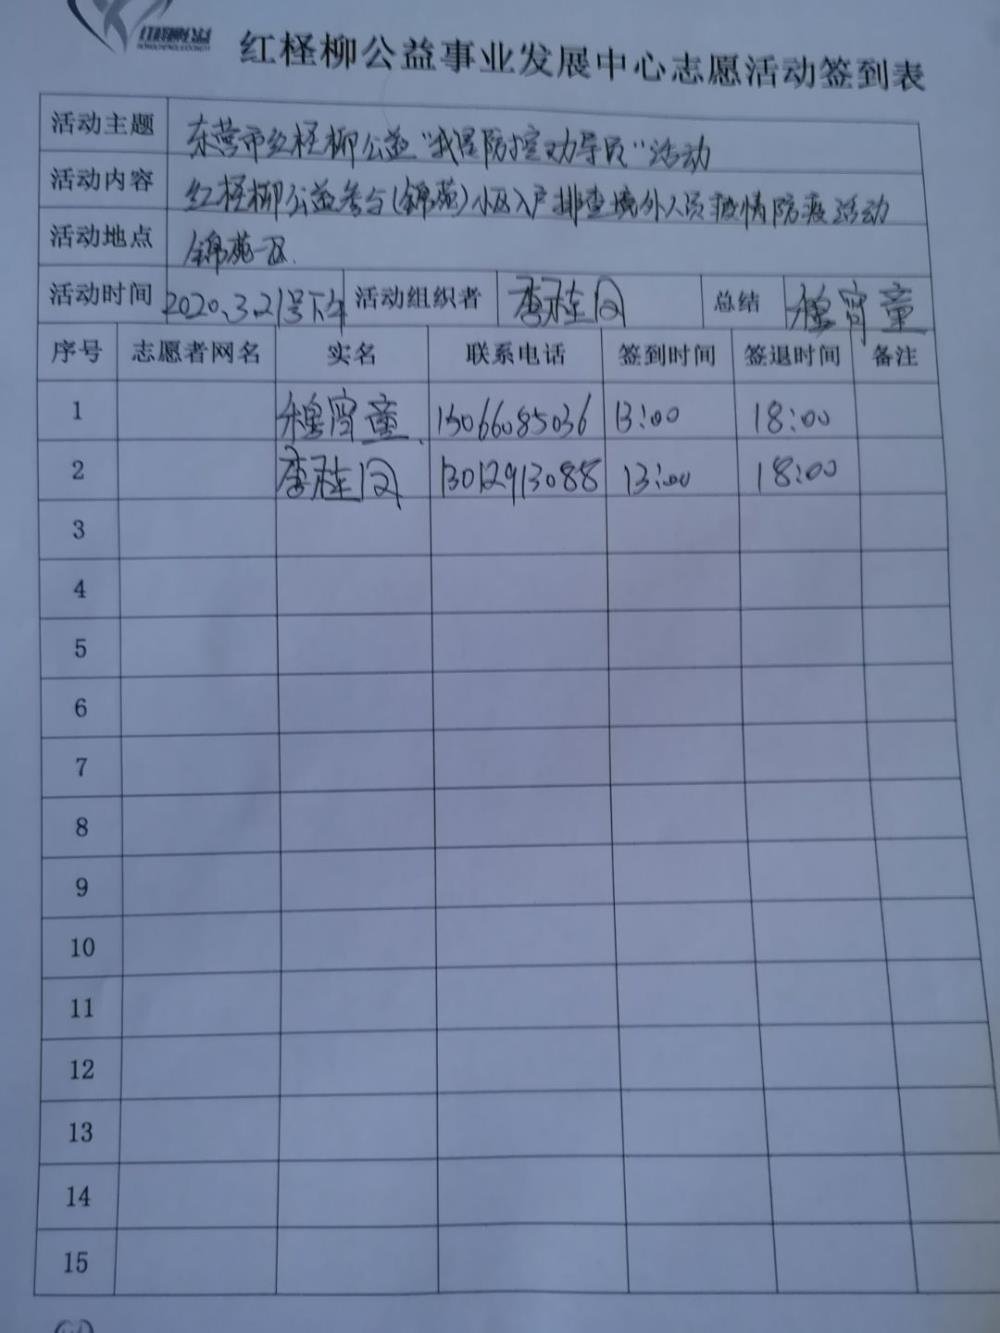 红柽柳公益事业发展中心志愿活动签到表
活动主题 东营市红柽柳公益“我是防控劝导员”活动
活动内容 红柽柳公益参与(锦苑)小区入户排查境外人员疫情防疫活动
活动地点 锦苑一区.
活动时间 2020.3.21号下午 活动组织者 李桂 总结 穆宵童
序号 志愿者网名 实名 联系电话 签到时间 签退时间 备注
1 穆宵童 13066085036 13:00 18:00
2 李桂 13012913088 13:00 18:00
3
4
5
6
7
8
9
10
11
12
13
14
15